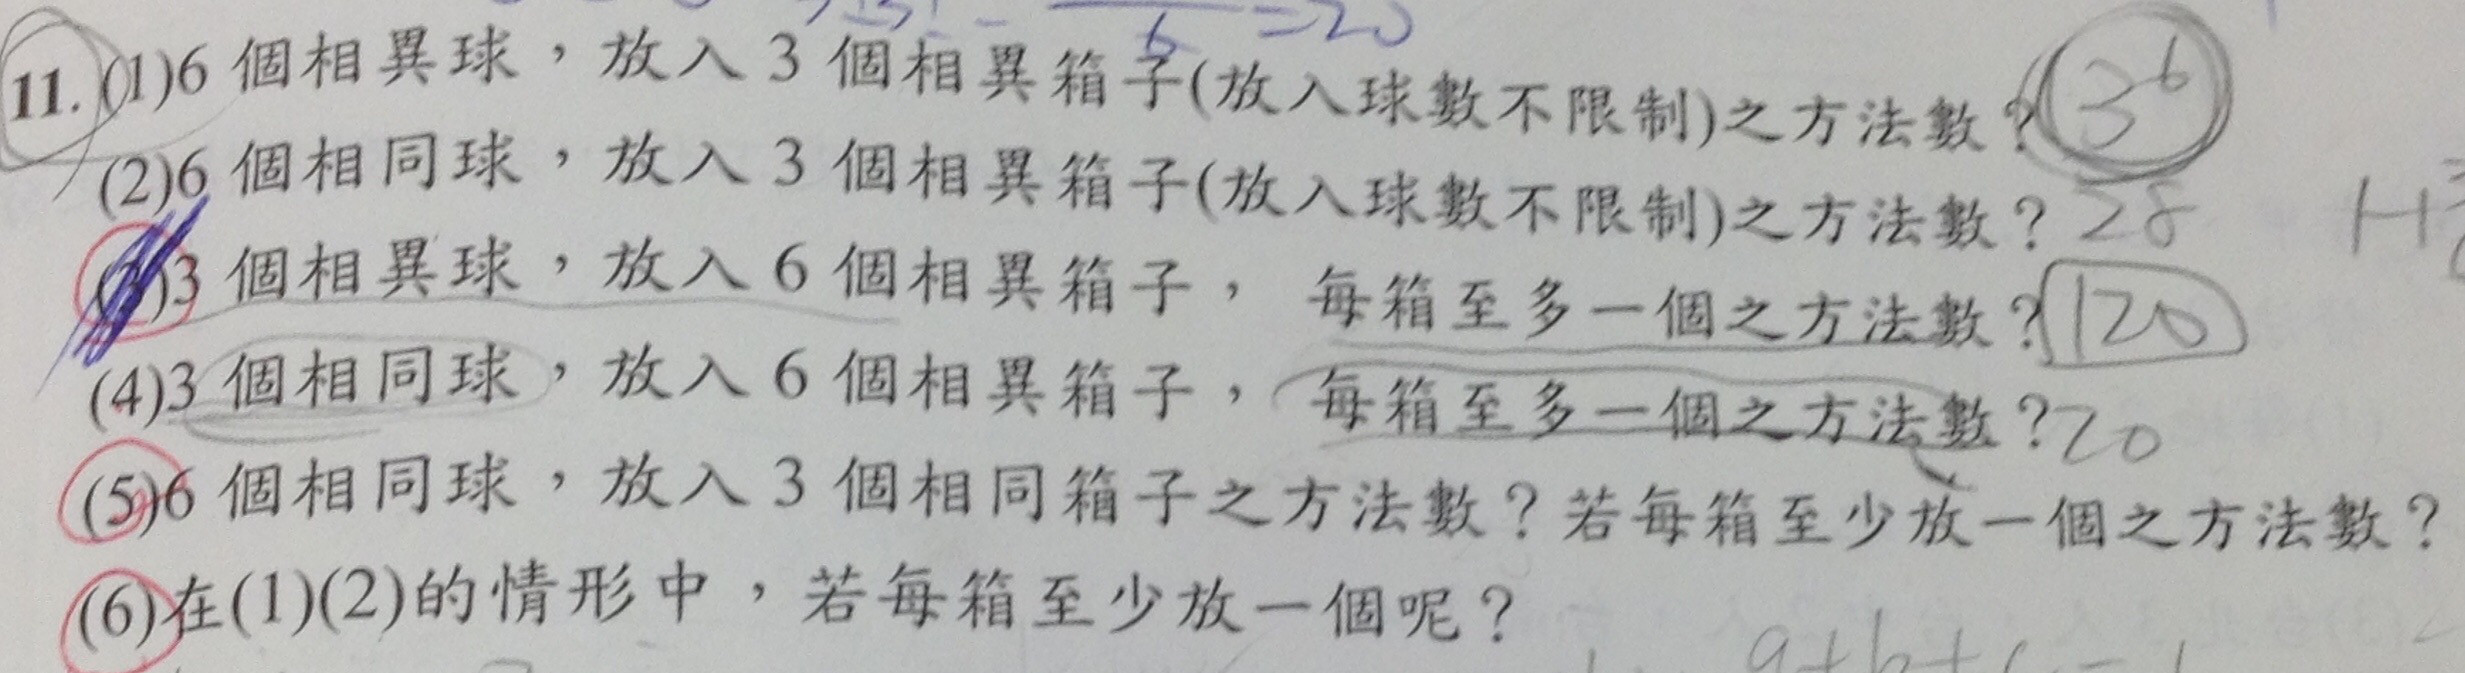 =20
6
11. (1)6 個相異球，放入 3 個相異箱子(放入球數不限制)之方法數？ 3⁶
(2)6 個相同球，放入 3 個相異箱子(放入球數不限制)之方法數？ 28 H
(3)3 個相異球，放入 6 個相異箱子， 每箱至多一個之方法數？ 120
(4)3 個相同球，放入 6 個相異箱子， 每箱至多一個之方法數？ 20
(5)6 個相同球，放入 3 個相同箱子之方法數？若每箱至少放一個之方法數？
(6)在(1)(2)的情形中，若每箱至少放一個呢？
a+b+c=